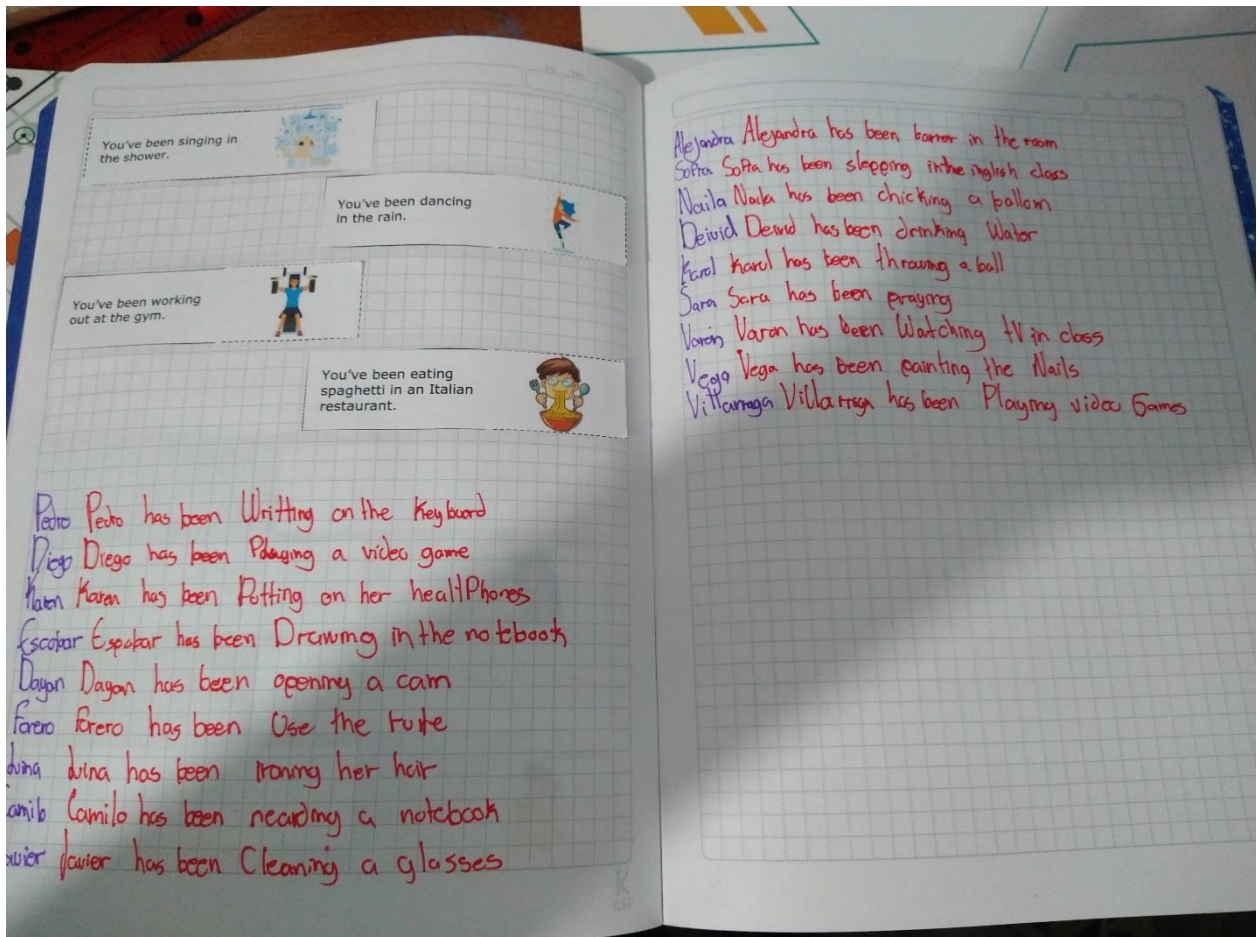 You've been singing in
the shower.
You've been dancing
in the rain.
You've been working
out at the gym.
You've been eating
spaghetti in an Italian
restaurant.
Pedro Pedro has been Writting on the Keyboard
Diego Diego has been Playing a video game
Karen Karen has been Putting on her healtPhones
Escobar Espobar has been Drawing in the notebook
Dayan Dayan has been opening a cam
Forero Forero has been Use the
has been ironing her hair
Camilo has been a notebook
Javier has been Cleaning a glasses
Alejandra Alejandra has been in the room
Sofia Sofia has been slepping in the inglish class
Naila Naila has been chicking a ballom
Deivid Deivid has been drinking Water
Karol Karol has been throwing a ball
Sara Sara has been praying
Varon Varon has been Watching tV in class
Vega Vega has been painting the Nails
Villarraga Villarraga has been Playing video Games